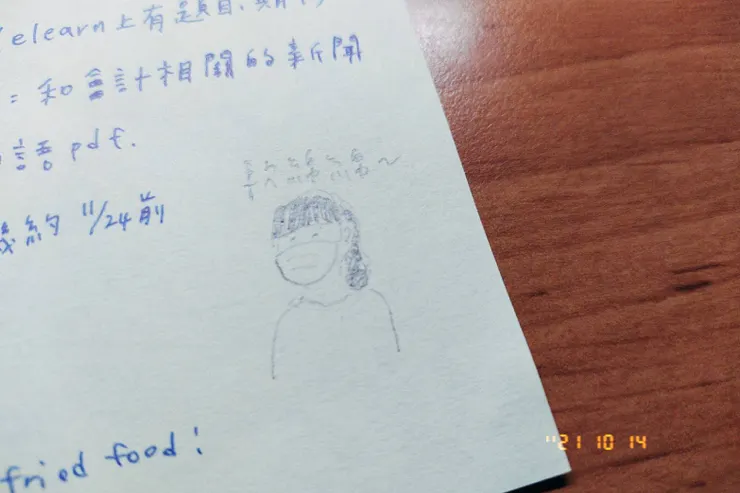 elearn上有題目、
: 和會計相關的新聞
語 pdf.
約 11/24前
fried food!
'21 10 14